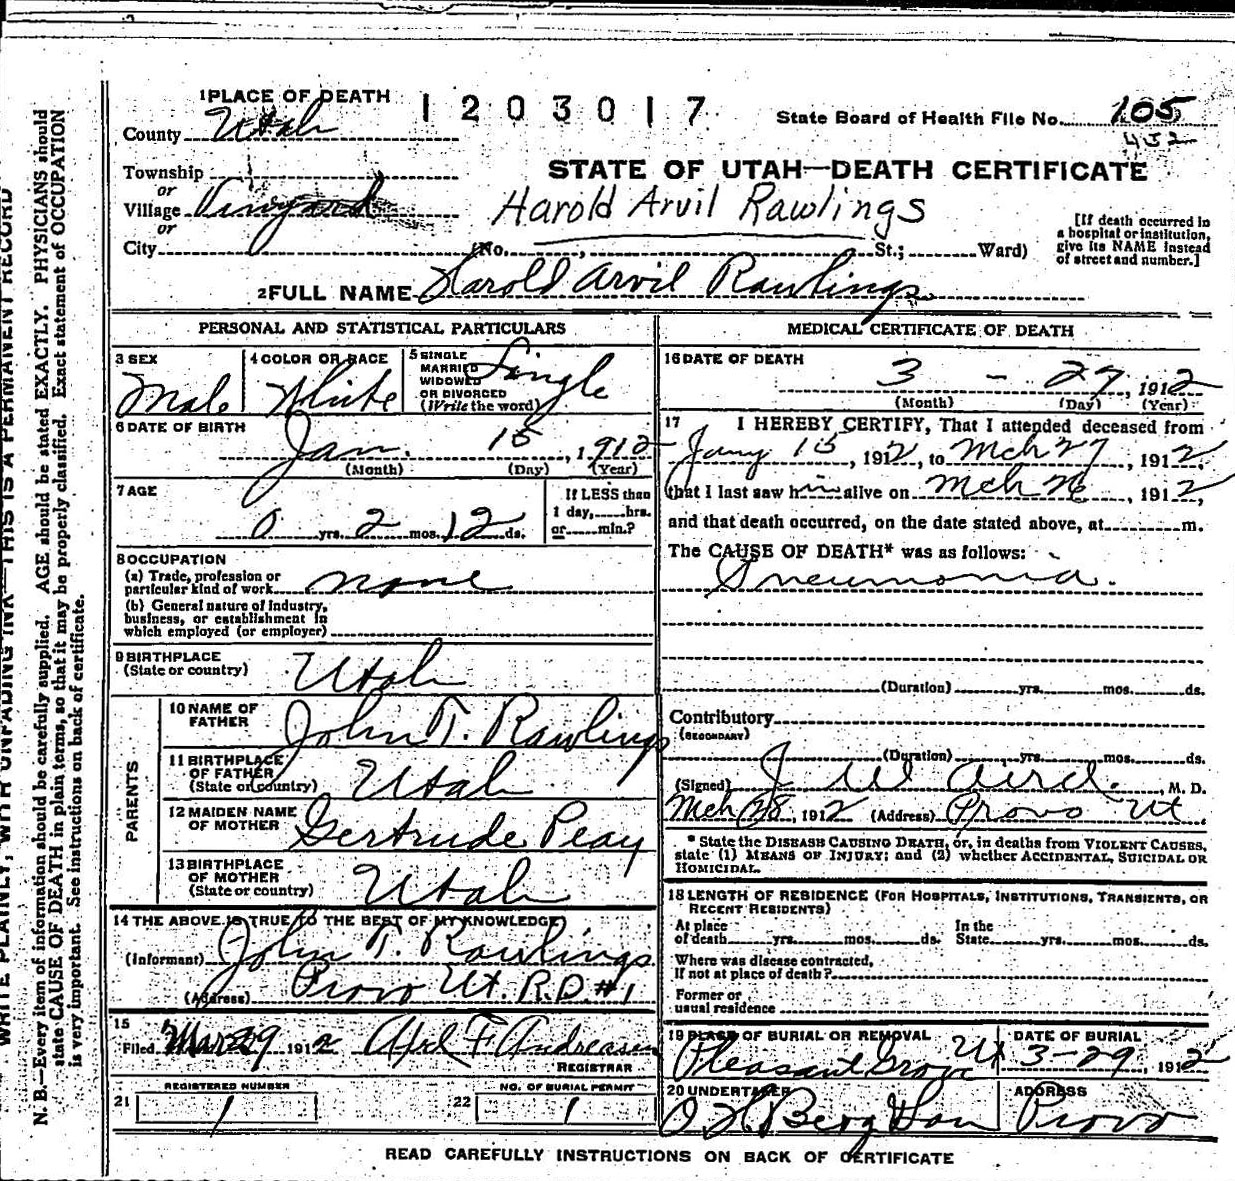 1 PLACE OF DEATH
1203017
State Board of Health File No. 105
432
County Utah
Township
or
Village Vinyard
or
City
STATE OF UTAH—DEATH CERTIFICATE
Harold Arvil Rawlings
(No. , St.; Ward)
[If death occurred in
a hospital or institution,
give its NAME instead
of street and number.]
2 FULL NAME Harold Arvil Rawlings
PERSONAL AND STATISTICAL PARTICULARS
3 SEX
Male
4 COLOR OR RACE
White
5 SINGLE
MARRIED
WIDOWED
OR DIVORCED
(Write the word)
Single
6 DATE OF BIRTH
Jan. 15, 1912
(Month) (Day) (Year)
7 AGE
0 yrs. 2 mos. 12 ds.
If LESS than
1 day, hrs.
or min.?
8 OCCUPATION
(a) Trade, profession or
particular kind of work none
(b) General nature of industry,
business, or establishment in
which employed (or employer)
9 BIRTHPLACE
(State or country) Utah
PARENTS
10 NAME OF
FATHER John T. Rawlings
11 BIRTHPLACE
OF FATHER
(State or country) Utah
12 MAIDEN NAME
OF MOTHER Gertrude Peay
13 BIRTHPLACE
OF MOTHER
(State or country) Utah
14 THE ABOVE IS TRUE TO THE BEST OF MY KNOWLEDGE
(Informant) John T. Rawlings
(Address) Provo Ut. R.D. #1
15
Filed Mar 29 1912 Axel F Andreasen
REGISTRAR
REGISTERED NUMBER
21 1
NO. OF BURIAL PERMIT
22 1
MEDICAL CERTIFICATE OF DEATH
16 DATE OF DEATH
3 - 27, 1912
(Month) (Day) (Year)
17 I HEREBY CERTIFY, That I attended deceased from
Jany 15, 1912, to Mch 27, 1912,
that I last saw him alive on Mch 26, 1912,
and that death occurred, on the date stated above, at m.
The CAUSE OF DEATH* was as follows:
Pneumonia.
(Duration) yrs. mos. ds.
Contributory
(SECONDARY)
(Duration) yrs. mos. ds.
(Signed) J W Aird., M. D.
Mch 28, 1912 (Address) Provo Ut.
* State the DISEASE CAUSING DEATH, or, in deaths from VIOLENT CAUSES,
state (1) MEANS OF INJURY; and (2) whether ACCIDENTAL, SUICIDAL OR
HOMICIDAL.
18 LENGTH OF RESIDENCE (FOR HOSPITALS, INSTITUTIONS, TRANSIENTS, OR
RECENT RESIDENTS)
At place In the
of death yrs. mos. ds. State yrs. mos. ds.
Where was disease contracted,
If not at place of death?
Former or
usual residence
19 PLACE OF BURIAL OR REMOVAL
Pleasant Grove Ut
DATE OF BURIAL
3-29, 1912
20 UNDERTAKER
O. H. Berg & Son
ADDRESS
Provo
READ CAREFULLY INSTRUCTIONS ON BACK OF CERTIFICATE
WRITE PLAINLY, WITH UNFADING INK—THIS IS A PERMANENT RECORD
N. B.—Every item of information should be carefully supplied. AGE should be stated EXACTLY. PHYSICIANS should
state CAUSE OF DEATH in plain terms, so that it may be properly classified. Exact statement of OCCUPATION
is very important. See instructions on back of certificate.